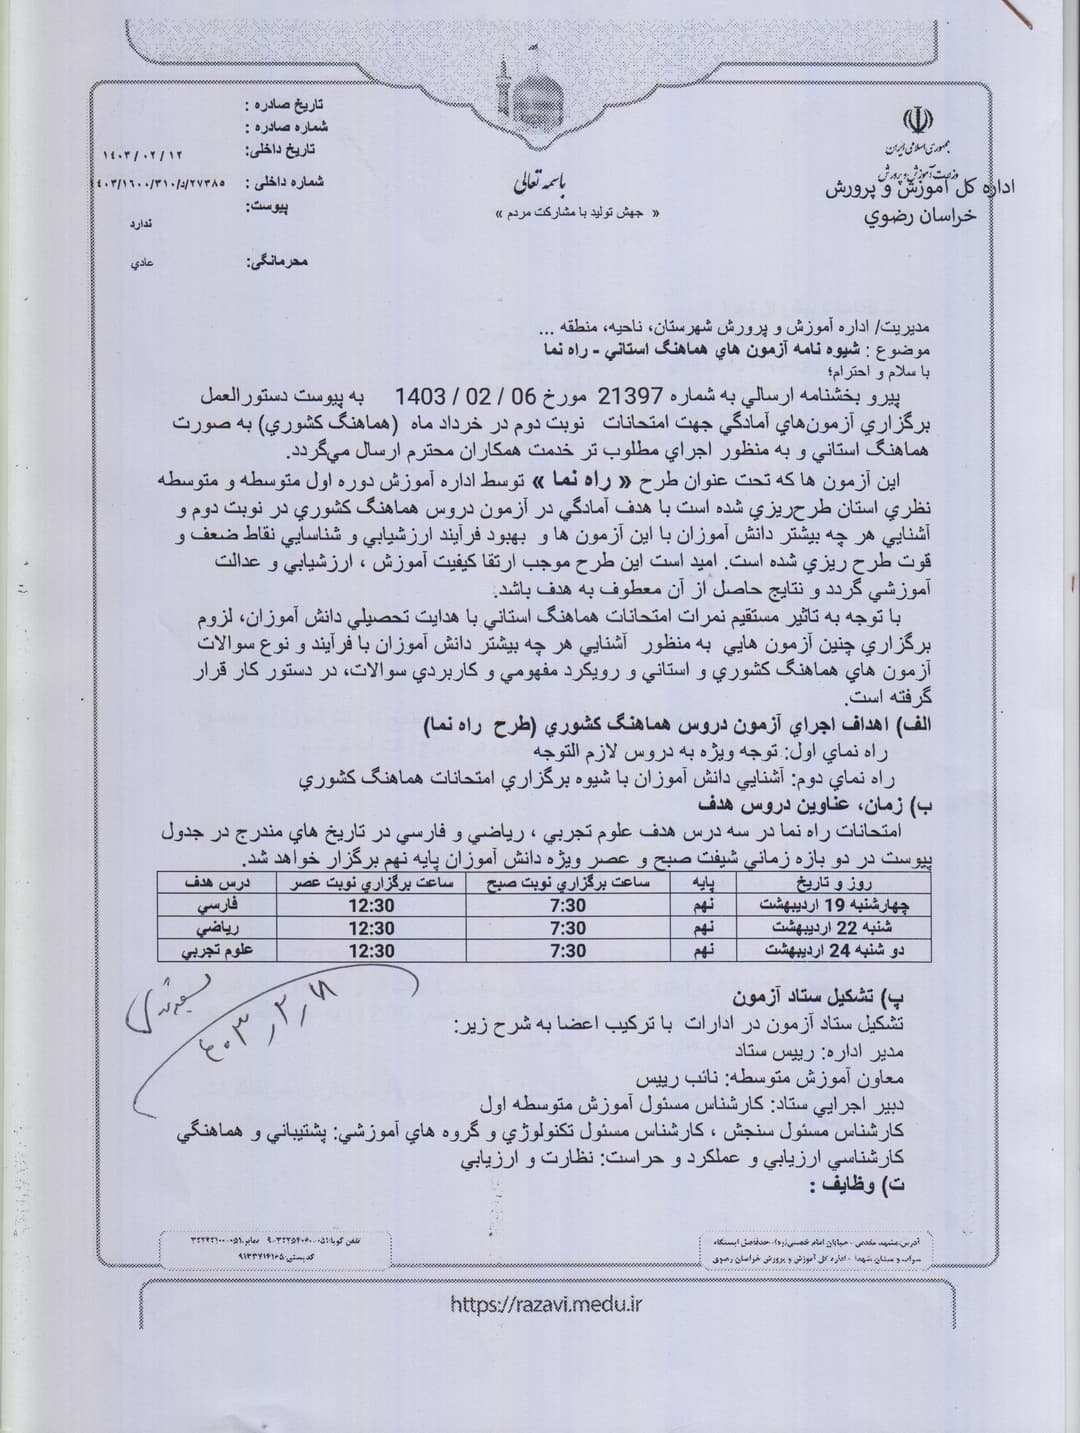 جمهوری اسلامی ایران
وزارت آموزش و پرورش
اداره کل آموزش و پرورش
خراسان رضوي
باسمه تعالی
« جهش تولید با مشارکت مردم »
تاریخ صادره :
شماره صادره :
تاریخ داخلی: ۱۴۰۳/۰۲/۱۲
شماره داخلی : ۱۴۰۳/۱۶۰۰/۳۱۰/د/۲۷۳۸۵
پیوست: ندارد
محرمانگی: عادي
مديريت/ اداره آموزش و پرورش شهرستان، ناحيه، منطقه ...
موضوع : شيوه نامه آزمون هاي هماهنگ استاني - راه نما
با سلام و احترام؛
پيرو بخشنامه ارسالي به شماره 21397 مورخ 06 / 02 / 1403 به پيوست دستورالعمل
برگزاري آزمون‌هاي آمادگي جهت امتحانات نوبت دوم در خرداد ماه (هماهنگ كشوري) به صورت
هماهنگ استاني و به منظور اجراي مطلوب تر خدمت همكاران محترم ارسال مي‌گردد.
اين آزمون ها كه تحت عنوان طرح « راه نما » توسط اداره آموزش دوره اول متوسطه و متوسطه
نظري استان طرح‌ريزي شده است با هدف آمادگي در آزمون دروس هماهنگ كشوري در نوبت دوم و
آشنايي هر چه بيشتر دانش آموزان با اين آزمون ها و بهبود فرآيند ارزشيابي و شناسايي نقاط ضعف و
قوت طرح ريزي شده است. اميد است اين طرح موجب ارتقا كيفيت آموزش ، ارزشيابي و عدالت
آموزشي گردد و نتايج حاصل از آن معطوف به هدف باشد.
با توجه به تاثير مستقيم نمرات امتحانات هماهنگ استاني با هدايت تحصيلي دانش آموزان، لزوم
برگزاري چنين آزمون هايي به منظور آشنايي هر چه بيشتر دانش آموزان با فرآيند و نوع سوالات
آزمون هاي هماهنگ كشوري و استاني و رويكرد مفهومي و كاربردي سوالات، در دستور كار قرار
گرفته است.
الف) اهداف اجراي آزمون دروس هماهنگ كشوري (طرح راه نما)
راه نماي اول: توجه ويژه به دروس لازم التوجه
راه نماي دوم: آشنايي دانش آموزان با شيوه برگزاري امتحانات هماهنگ كشوري
ب) زمان، عناوين دروس هدف
امتحانات راه نما در سه درس هدف علوم تجربي ، رياضي و فارسي در تاريخ هاي مندرج در جدول
پيوست در دو بازه زماني شيفت صبح و عصر ويژه دانش آموزان پايه نهم برگزار خواهد شد.
روز و تاريخ پايه ساعت برگزاري نوبت صبح ساعت برگزاري نوبت عصر درس هدف
چهارشنبه 19 ارديبهشت نهم 7:30 12:30 فارسي
شنبه 22 ارديبهشت نهم 7:30 12:30 رياضي
دو شنبه 24 ارديبهشت نهم 7:30 12:30 علوم تجربي
پ) تشكيل ستاد آزمون
تشكيل ستاد آزمون در ادارات با تركيب اعضا به شرح زير:
مدير اداره: رييس ستاد
معاون آموزش متوسطه: نائب رييس
دبير اجرايي ستاد: كارشناس مسئول آموزش متوسطه اول
كارشناس مسئول سنجش ، كارشناس مسئول تكنولوژي و گروه هاي آموزشي: پشتيباني و هماهنگي
كارشناسي ارزيابي و عملكرد و حراست: نظارت و ارزيابي
ت) وظايف :
آدرس:مشهد مقدس - خیابان امام خمینی(ره)- حدفاصل ایستگاه
سراب و میدان شهدا - اداره کل آموزش و پرورش خراسان رضوی
https://razavi.medu.ir